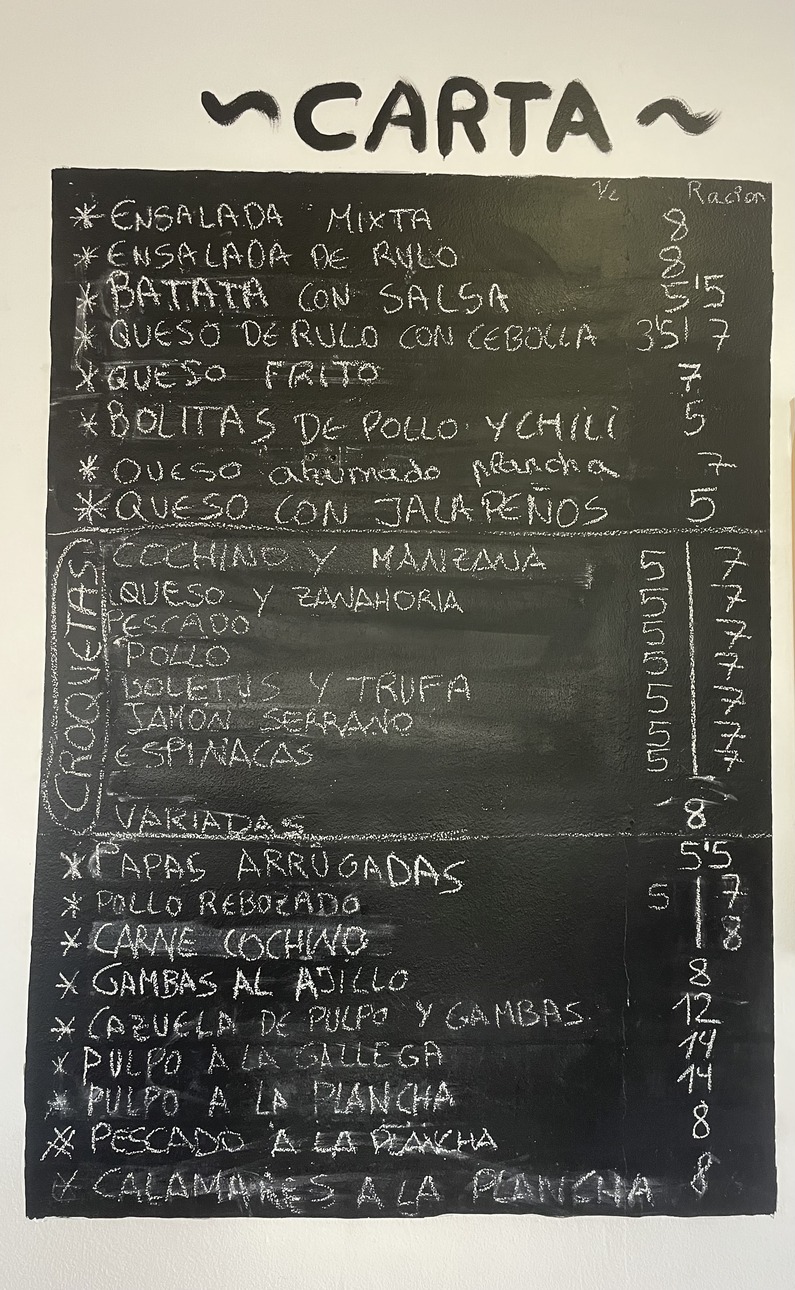 ~CARTA~
1/2 Racion
* ENSALADA MIXTA 8
* ENSALADA DE RULO 8
* BATATA CON SALSA 5'5
* QUESO DE RULO CON CEBOLLA 3'5| 7
* QUESO FRITO 7
* BOLITAS DE POLLO Y CHILI 5
* QUESO ahumado plancha 7
* QUESO CON JALAPEÑOS 5
CROQUETAS
COCHINO Y MANZANA 5 | 7
QUESO Y ZANAHORIA 5 | 7
PESCADO 5 | 7
POLLO 5 | 7
BOLETUS Y TRUFA 5 | 7
JAMON SERRANO 5 | 7
ESPINACAS 5 | 7
VARIADAS 8
* PAPAS ARRUGADAS 5'5
* POLLO REBOZADO 5 | 7
* CARNE COCHINO | 8
* GAMBAS AL AJILLO 8
* CAZUELA DE PULPO Y GAMBAS 12
* PULPO A LA GALLEGA 14
* PULPO A LA PLANCHA 14
* PESCADO A LA PLANCHA 8
* CALAMARES A LA PLANCHA 8